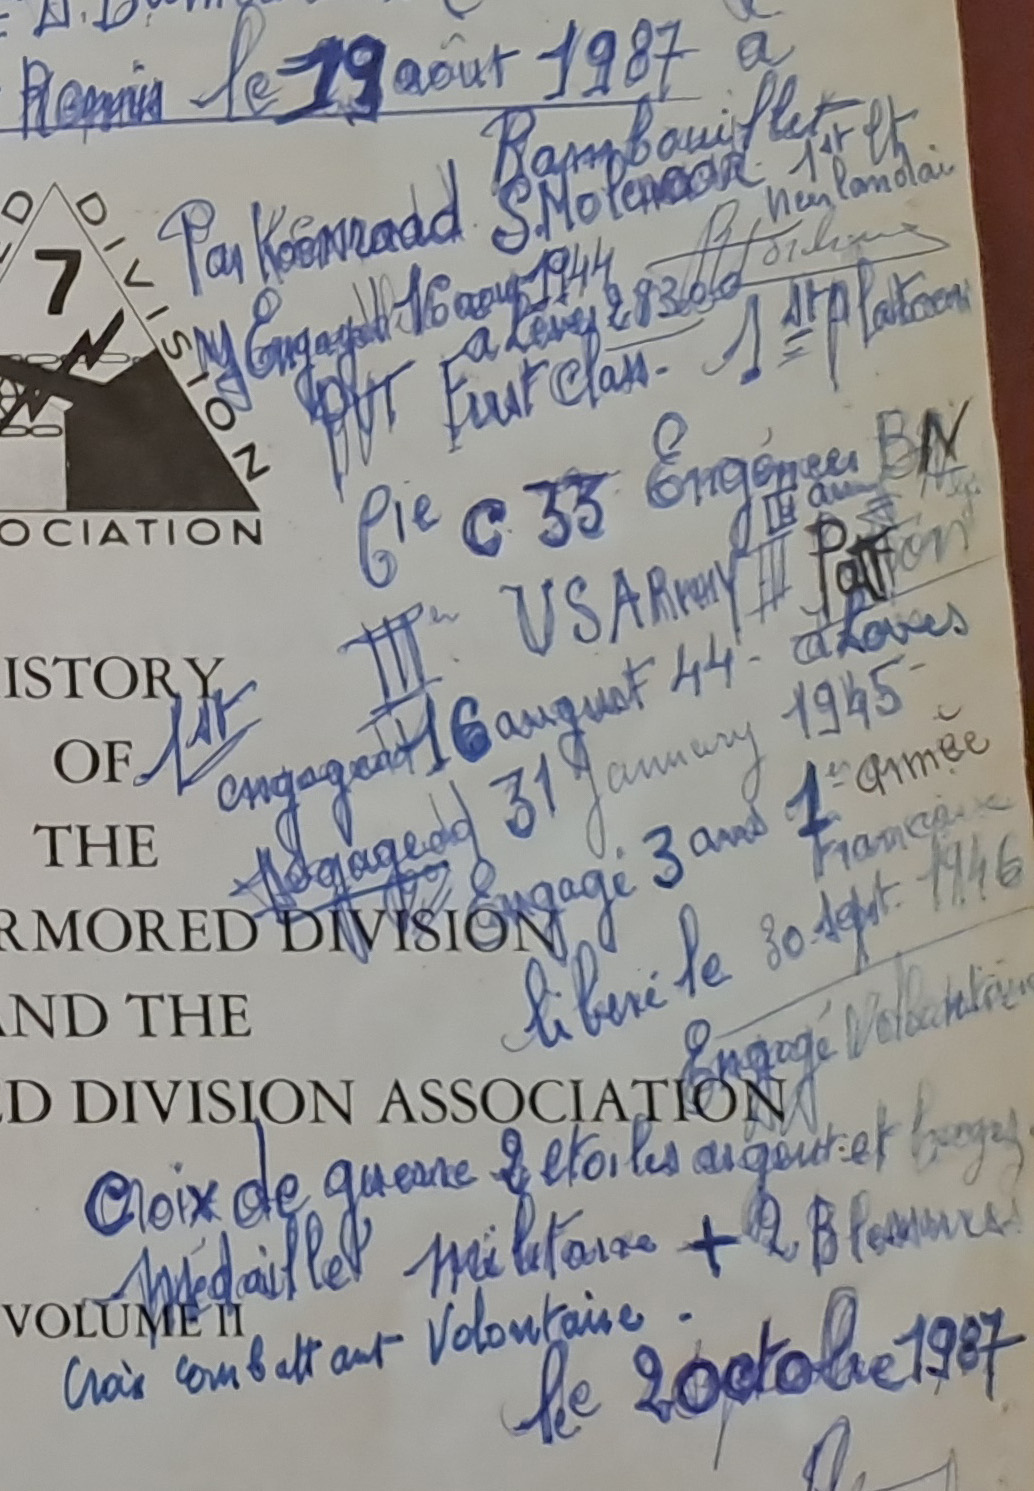 Remis le 19 août 1987 à
Rambouillet
Par Koenraad S. Molenaar 1st Lt
neerlandais
Engaged 16 aout 1944
a Lèves 28300
PVT First Class. 1st platoon
DIVISION
7
OCIATION
Cie C 33 Engéneer BN
III US ARmy III Patton
ISTORY
OF
THE
RMORED DIVISION
AND THE
ED DIVISION ASSOCIATION
VOLUME II
1st engaged 16 august 44 - à Lèves
31 january 1945
Engagé 3 ans 1er armée
Française
libéré le 30 sept. 1946
Engagé Volontaire
Croix de guerre 2 etoiles argent et
Médaille militaire + 2 Blessures
Croix combattant Volontaire -
le 2 octobre 1987